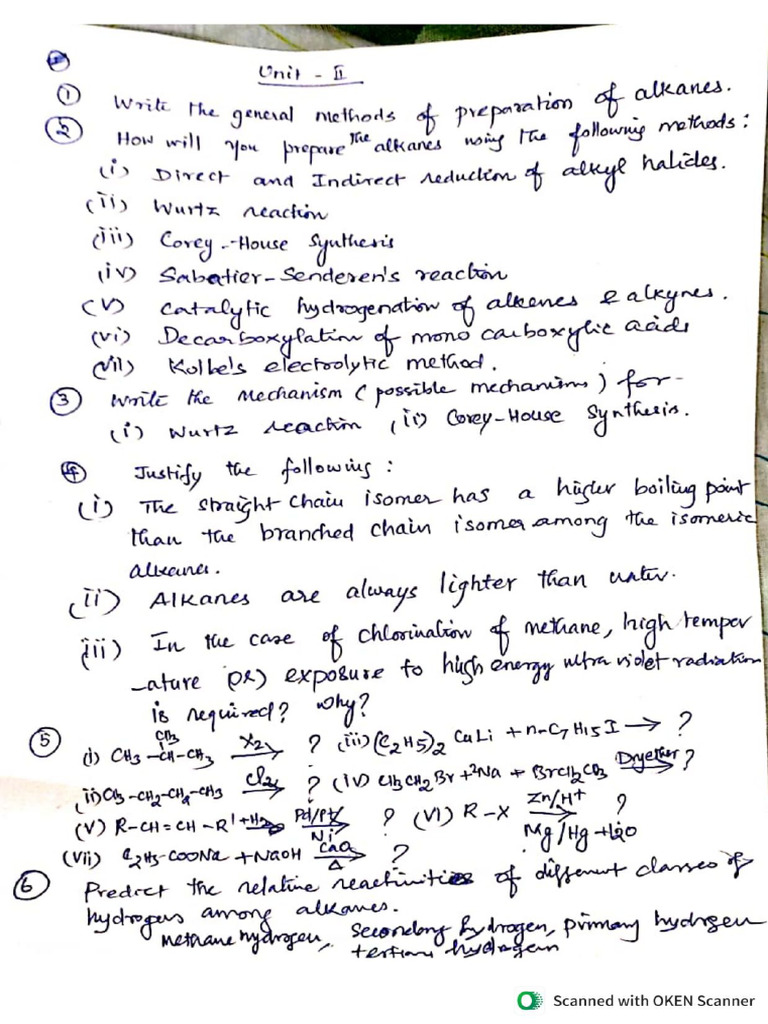 Unit - II
① Write the general methods of preparation of alkanes.
② How will you prepare the alkanes using the following methods:
(i) Direct and Indirect reduction of alkyl halides.
(ii) Wurtz reaction
(iii) Corey-House Synthesis
(iv) Sabatier-Senderen's reaction
(v) Catalytic hydrogenation of alkenes & alkynes.
(vi) Decarboxylation of mono carboxylic acids
(vii) Kolbe's electrolytic method.
③ Write the Mechanism (possible mechanisms) for-
(i) Wurtz reaction, (ii) Corey-House Synthesis.
④ Justify the following:
(i) The straight chain isomer has a higher boiling point
than the branched chain isomer among the isomeric
alkanes.
(ii) Alkanes are always lighter than water.
(iii) In the case of chlorination of methane, high temper
-ature (or) exposure to high energy ultra violet radiation
is required? Why?
CH3
⑤ (i) CH3-CH-CH3 X2→ ? (iii) (C2H5)2 CuLi + n-C7H15I → ?
(ii) CH3-CH2-CH2-CH3 Cl2→ ? (iv) CH3CH2Br + 2Na + BrCH2CH3 Dryether→ ?
(v) R-CH=CH-R' + H2 Pd/Pt/Ni→ ? (vi) R-X Zn/H+→ ?
Mg/Hg + H2O
(vii) C2H5-COONa + NaOH CaO→ ?
Δ
⑥ Predict the relative reactivities of different classes of
hydrogens among alkanes.
methane hydrogen, secondary hydrogen, primary hydrogen
tertiary hydrogen
Scanned with OKEN Scanner